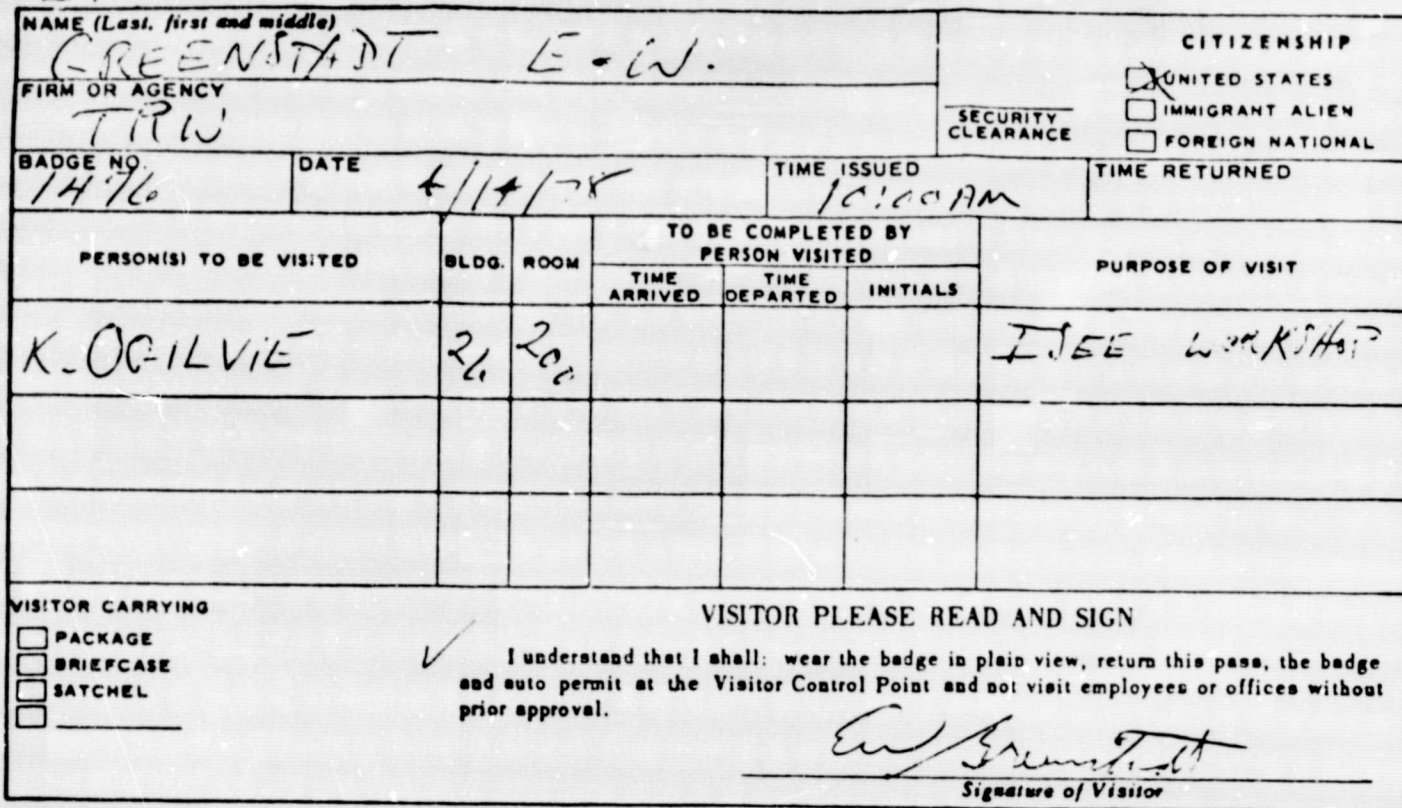 NAME (Last, first and middle)
GREENSTADT E.W.
CITIZENSHIP
UNITED STATES
IMMIGRANT ALIEN
FOREIGN NATIONAL
SECURITY CLEARANCE
FIRM OR AGENCY
TRW
BADGE NO.
1476
DATE
4/14/78
TIME ISSUED
10:00 AM
TIME RETURNED
PERSON(S) TO BE VISITED
BLDG.
ROOM
TO BE COMPLETED BY
PERSON VISITED
TIME ARRIVED
TIME DEPARTED
INITIALS
PURPOSE OF VISIT
K. OGILVIE
2
200
ISEE WORKSHOP
VISITOR CARRYING
PACKAGE
BRIEFCASE
SATCHEL
VISITOR PLEASE READ AND SIGN
I understand that I shall: wear the badge in plain view, return this pass, the badge
and auto permit at the Visitor Control Point and not visit employees or offices without
prior approval.
EW Greenstadt
Signature of Visitor